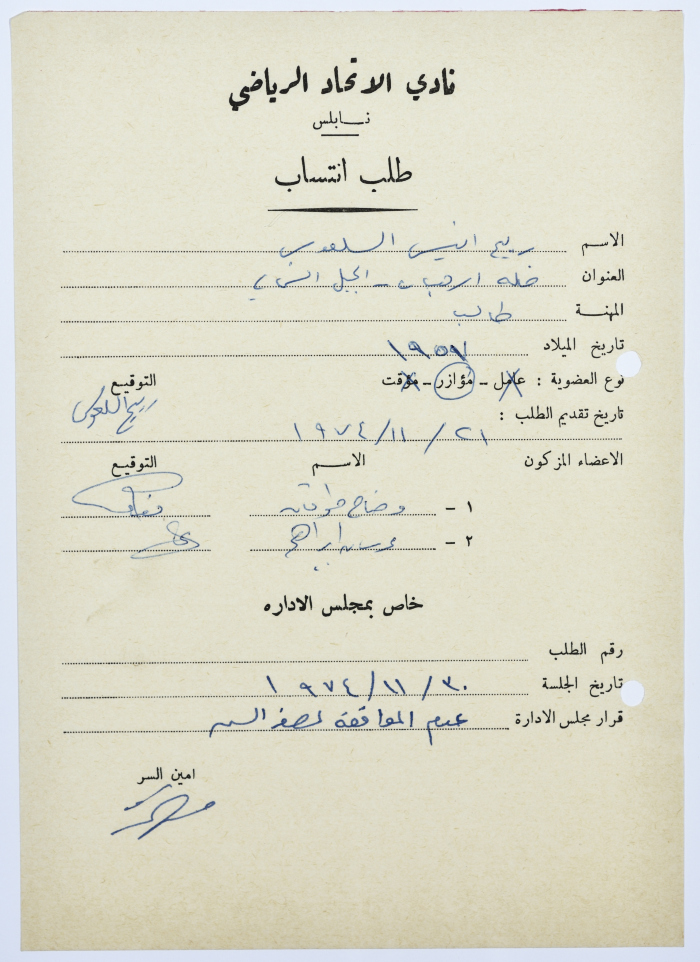 نادي الاتحاد الرياضي
نابلس
طلب انتساب
الاسم ربيع انيس السلعوس
العنوان خلة ... - الجبل الشمالي
المهنة طالب
تاريخ الميلاد ١٩٥٧
نوع العضوية : عامل - مؤازر - مؤقت التوقيع
تاريخ تقديم الطلب : ربيع السلعوس
٢١ / ١١ / ١٩٧٤
الاعضاء المزكون الاسم التوقيع
١ - وضاح
٢ - ابراهيم
خاص بمجلس الاداره
رقم الطلب
تاريخ الجلسة ٣٠ / ١١ / ١٩٧٤
قرار مجلس الادارة عدم الموافقة لصغر السن
امين السر